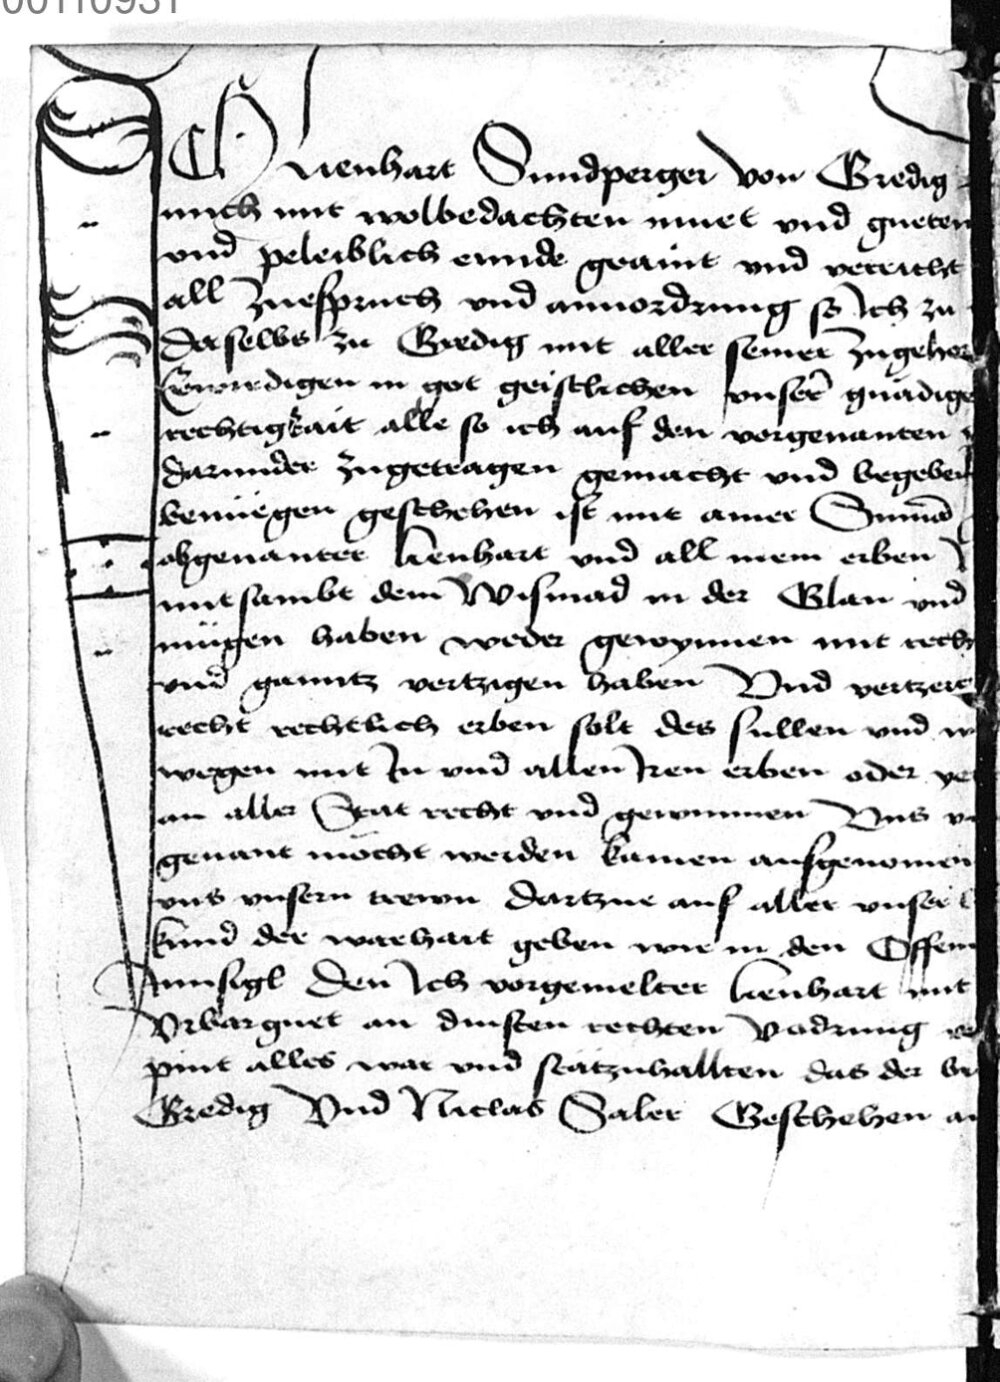 00110931
Ich Lienhart Sundperger von Gredig
mich mit wolbedachten muet und gueten
und peleiblich ennde geaint und vericht
all zuespruch und annordrung so Ich zu
daselbs zu Gredig mit aller seiner zugehor
Erwirdigen in got geistlichen unser gnadige
rechtigkait alle so ich auf den vorgenanten
darunder zugetragen gemacht und begeben
benüegen geschehen ist mit ainer Summa
obgenanter Lienhart und all mein erben
mitsambt dem Wismad in der Glan und
mügen haben weder gewynnen mit recht
und ganntz vertzigen haben Und vertzei
recht rechtlich erben solt des sullen und
wegen mit In und allen Iren erben oder
an aller Stat recht und gewinnen Uns
genant möcht werden kainen ausgenomen
uns unsern trewn dartzue auf aller unser
kund der warhait geben wir in den Offen
Innsigl Den Ich vorgemelter Lienhart mit
Urbarguet an dinsten rechten Vadrung
pint alles war und stätzuhallten das der
Gredig Und Niclas Saler Geschehen an